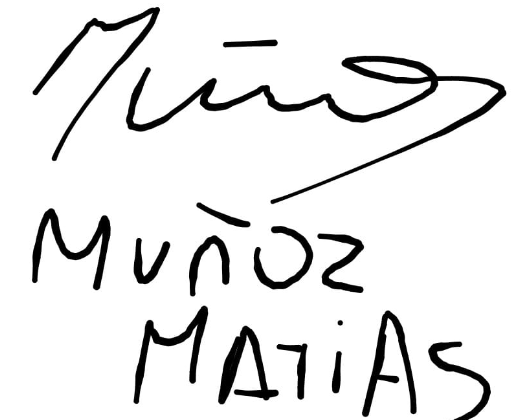 Muñoz
MUÑOZ
MATiAS